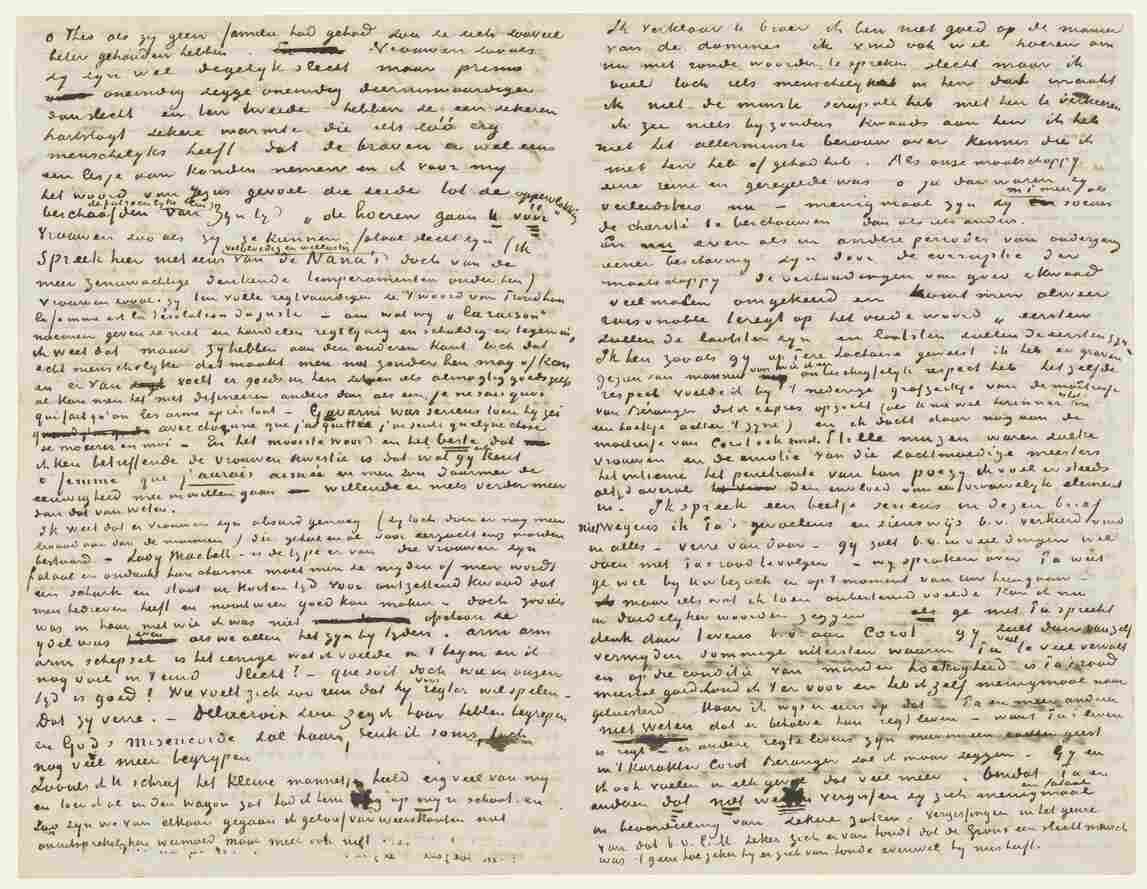 o Theo als zij geen familie had gehad zou ze zich zooveel
beter gehouden hebben. Vrouwen zooals
zij zijn wel degelijk slecht maar primo
oneindig zegge oneindig deerniswaardiger
dan slecht en ten tweede hebben ze een zekeren
hartstogt zekere warmte die iets zóó erg
menschelijks heeft dat de braven er wel eens
een lesje aan konden nemen en ik voor mij
het woord van Jezus gevoel die zeide tot de oppervlakkig
beschaafden fatsoenlijke lui van zijn tijd „de hoeren gaan U voor”
Vrouwen zoo als zij ze kunnen slecht zijn (ik
spreek hier niet eens van de Nana's doch van de
meer zenuwachtige denkende temperamenten onder hen)
vrouwen zooals zij ten volle regtvaardigen ze 't woord van Proudhon
la femme est la désolation du juste – om wat wij „la raison”
noemen geven ze niet en handelen regtstreeks en schuldig er tegen in,
ik weet dat maar zij hebben aan den anderen kant toch dat
echt menschelijke dat maakt men niet zonder hen mag of kan
en er van voelt er goeds in hen als almagtig goeds zelfs
al kan men het niet definieren anders dan als een je ne sais quoi
qui fait qu'on les aime après tout – Gavarni was serieus toen hij zei
avec chacune que j'ai quittée, j'ai senti quelque chose
se mourir en moi – En het mooiste woord en het beste dat
ik ken betreffende de vrouwen kwestie is dat wat gij kent
o femme que j'aurais aimée en men zou daarmee de
eeuwigheid mee in willen gaan – willende er niets verder meer
dan dat van weten.
Ik weet dat er vrouwen zijn absurd genoeg (zij toch doen er nog meer
kwaad aan dan de mannen) die geheel en al door eerzucht eens worden
bestuurd – Lady Macbeth – is de type er van die vrouwen zijn
fataal en ondanks hun charme moet men ze mijden of men wordt
een schurk en staat in korten tijd voor ontzettend kwaad dat
men bedreven heeft en nooit weer goed kan maken – doch zooiets
was in haar met wie ik was niet ofschoon ze
ijdel was even als we allen het zijn bij tijden. arm arm
arm schepsel is het eenige wat ik voelde in 't begin en ik
nog voel in 't eind slecht? – que soit doch wie in onzen
tijd is goed? Wie voelt zich zoo rein dat hij voor regter wil spelen –
Dat zij verre. – Delacroix zou zegt haar hebben begrepen,
en God's misericorde zal haar, denk ik soms,
nog veel meer begrijpen
Zooals ik U schreef het kleine mannetje hield erg veel van mij
en toen ik al in den wagon zat had ik hem nog op mijn schoot en
zoo zijn we van elkaar gegaan ik geloof van weerskanten met
onuitsprekelijken weemoed maar meer ook niet.
Ik verklaar U broer ik ben niet goed op de manier
van de domines ik vind ook wel hoeren om
nu met ronde woorden te spreken slecht maar ik
voel toch iets menschelijks in hen dat maakt
ik niet de minste scrupule heb met hen te verkeeren
ik zie niets bijzonders kwaads aan hen ik heb
niet het allerminste berouw over kennis die ik
met hen heb of gehad heb. Als onze maatschappij
eene reine en geregelde was o ja dan waren zij
verleidsters nu – menigmaal zijn zij in mijn oog meer als soeurs
de charité te beschouwen dan als iets anders.
En nu even als in andere periodes van ondergang
eener beschaving zijn door de corruptie der
maatschappij de verhoudingen van goed & kwaad
veelmalen omgekeerd en komt men alweer
raisonnable teregt op het oude woord „eersten
zullen de laatsten zijn en laatsten zullen de eersten zijn.
Ik ben zooals gij op Père Lachaise geweest ik heb er graven
gezien van mannen voor wie ik een onbeschrijfelijk respect heb hetzelfde
respect voelde ik bij 't nederige grafzerkje van de maîtresse
van Béranger dat ik exprès opzocht (als ik me wel herinner in
een hoekje achter 't zijne) en ik dacht daar nog aan de
maitresse van Corot ook eens. Stille muzen waren zulke
vrouwen en de emotie van die zachtmoedige meesters
het intieme het penetrante van hun poezij ik voel er steeds
altijd overal den invloed van een vrouwelijk element
in. Ik spreek een beetje serieus in dezen brief
niet wegens ik Pa's gevoelens en zienswijs b.v. verkeerd vind
in alles – verre van daar – gij zult b.v. in veel dingen wel
doen met Pa's raad te volgen – wij spraken over Pa wist
ge wel bij Uw bezoek en op 't moment van Uw heengaan –
maar iets wat ik toen onbestemd voelde kan ik nu
in duidelijker woorden zeggen als ge met Pa spreekt
denk dan tevens b.v. aan Corot. Gij zult dan van zelf
vermijden sommige uitersten waarin Pa te veel vervalt
en op die conditie van minder hoekigheid is Pa's raad
meestal goed houd ik 't er voor en heb ik zelf menigmaal naar
geluisterd. Maar ik wijs er eens op dat Pa en meer anderen
niet weten dat er behalve hun regt leven – want Pa's leven
is regt – er andere regte levens zijn
in 't karakter Corot Béranger zal ik maar zeggen. Gij en
ik ook voelen in elk geval dat veel meer. Omdat Pa en
anderen dat niet weten vergissen zij zich menigmaal en fataal
in beoordeeling van zekere zaken. Vergissingen in het genre
van dat b.v. C.M. zeker zich er van houdt dat de Groux een slecht mensch
was 't geen hoe zeker hij er zich van houde evenwel bij mis heeft.